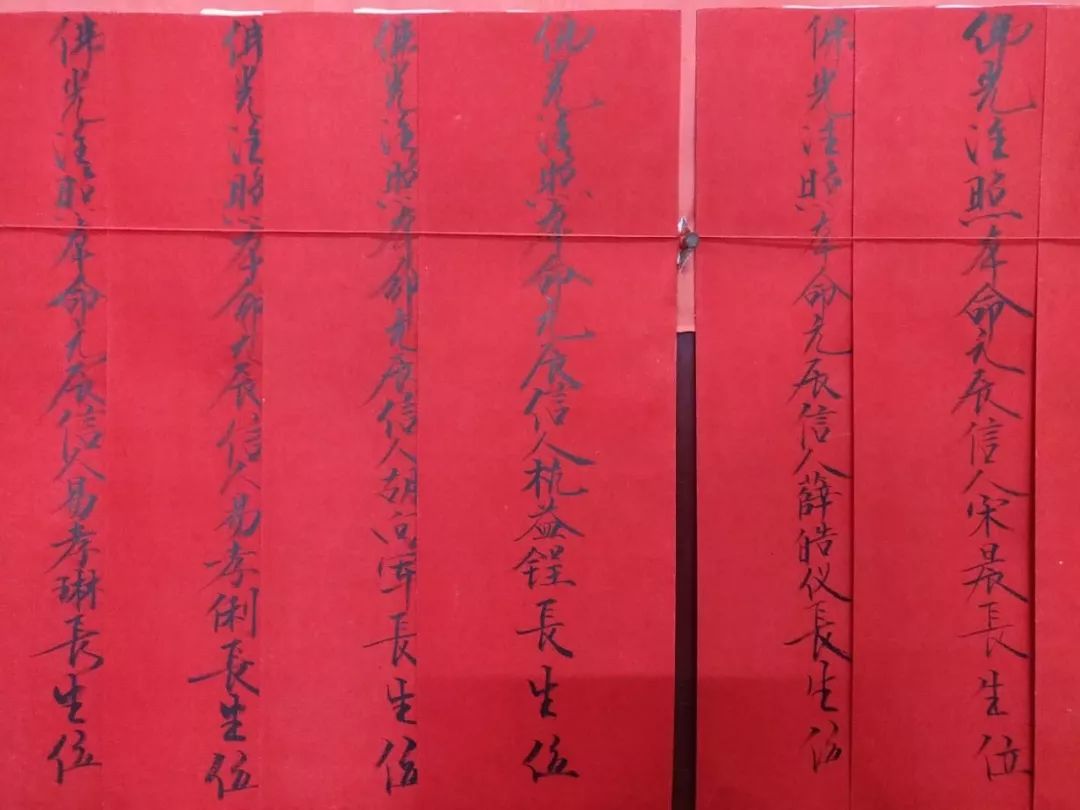 佛光注照本命元辰信人宋晨長生位
佛光注照本命元辰信人薛皓仪長生位
佛光注照本命元辰信人杭益锃長生位
佛光注照本命元辰信人胡向軍長生位
佛光注照本命元辰信人易孝俐長生位
佛光注照本命元辰信人易孝琳長生位